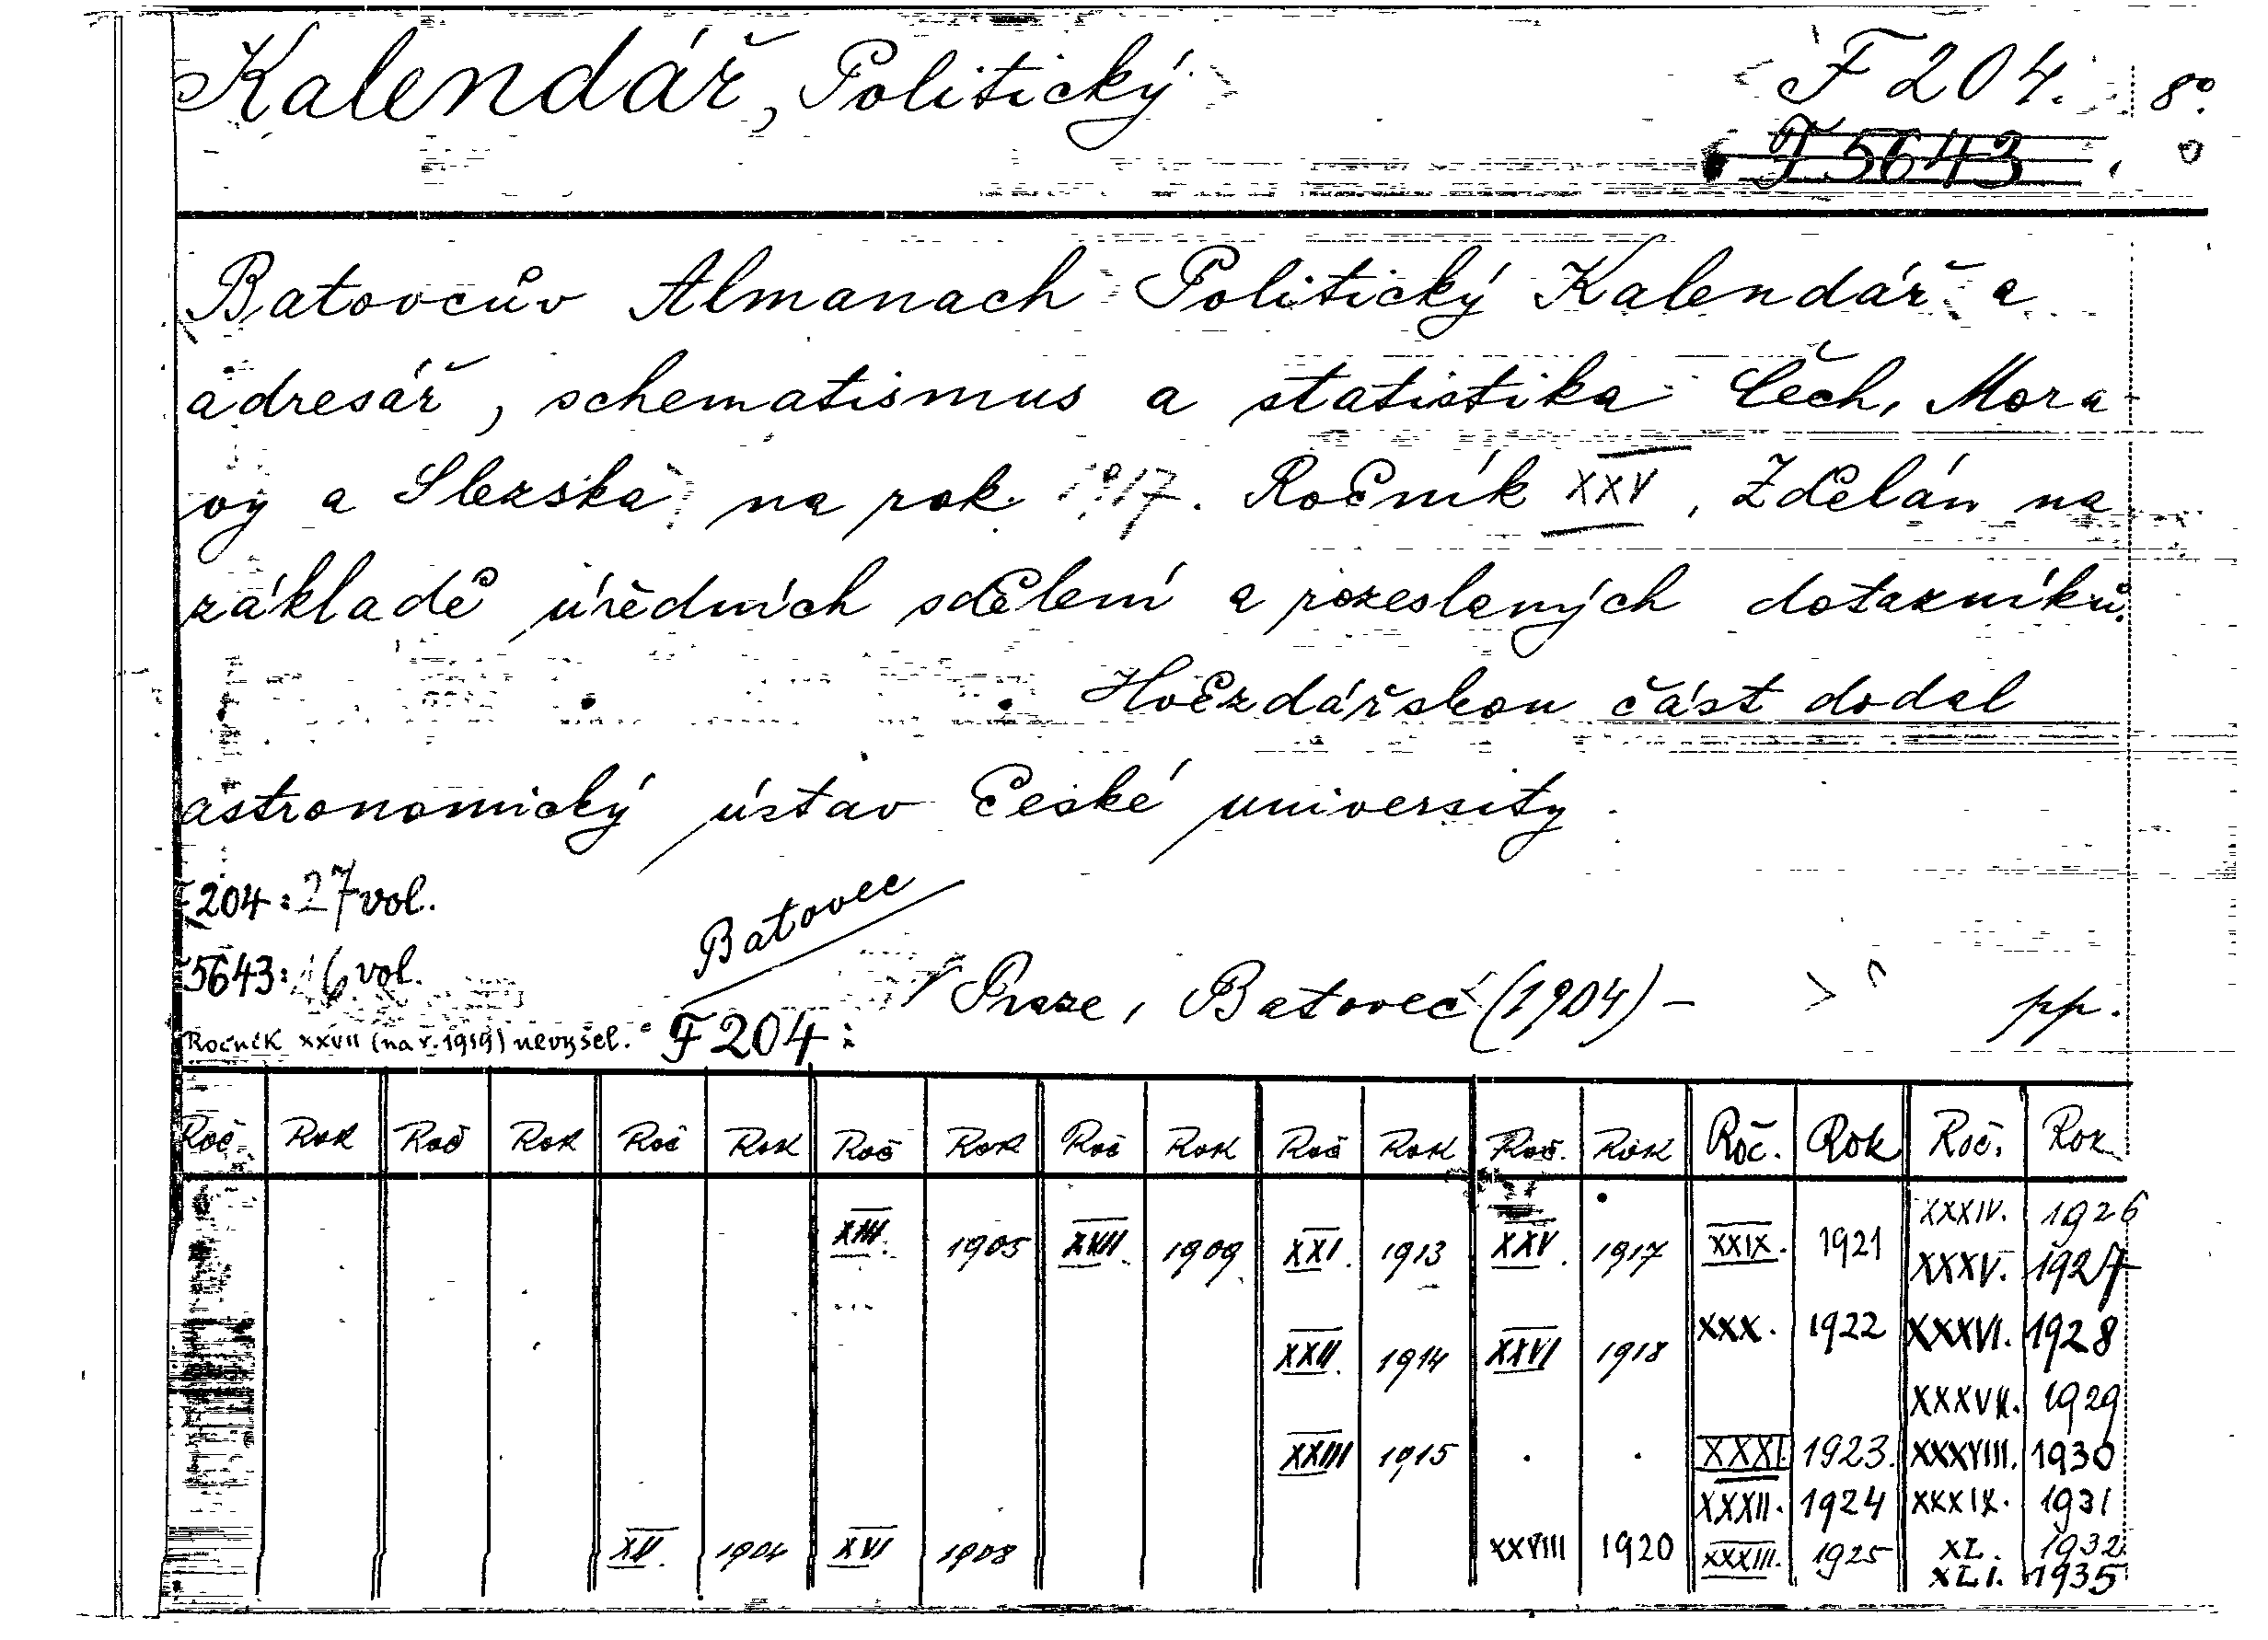 Kalendář, Politický F 204. 8°.
F 5643
Batovcův Almanach Politický Kalendář a
adresář, schematismus a statistika Čech, Mora-
vy a Slezska na rok 1917. Ročník XXV, Zdělán na
základě úředních sdělení a rozeslaných dotazníků.
Hvězdářskou část dodal
astronomický ústav české university.
F 204: 27 vol.
Batovec
5643: 16 vol.
V Praze, Batovec (1904) - pp.
Ročník XXVII (na r. 1919) nevyšel. F 204:
Roč Rok Roč Rok Roč Rok Roč Rok Roč Rok Roč Rok Roč. Rok Roč. Rok Roč. Rok
XXXIV. 1926
XIII. 1905 XVII. 1909 XXI. 1913 XXV. 1917 XXIX. 1921 XXXV. 1927
XXII. 1914 XXVI 1918 XXX. 1922 XXXVI. 1928
XXXVII. 1929
XXIII 1915 XXXI. 1923. XXXVIII. 1930
XXXII. 1924 XXXIX. 1931
XII. 1904 XVI 1908 XXVIII 1920 XXXIII. 1925 XL. 1932.
XLI. 1935